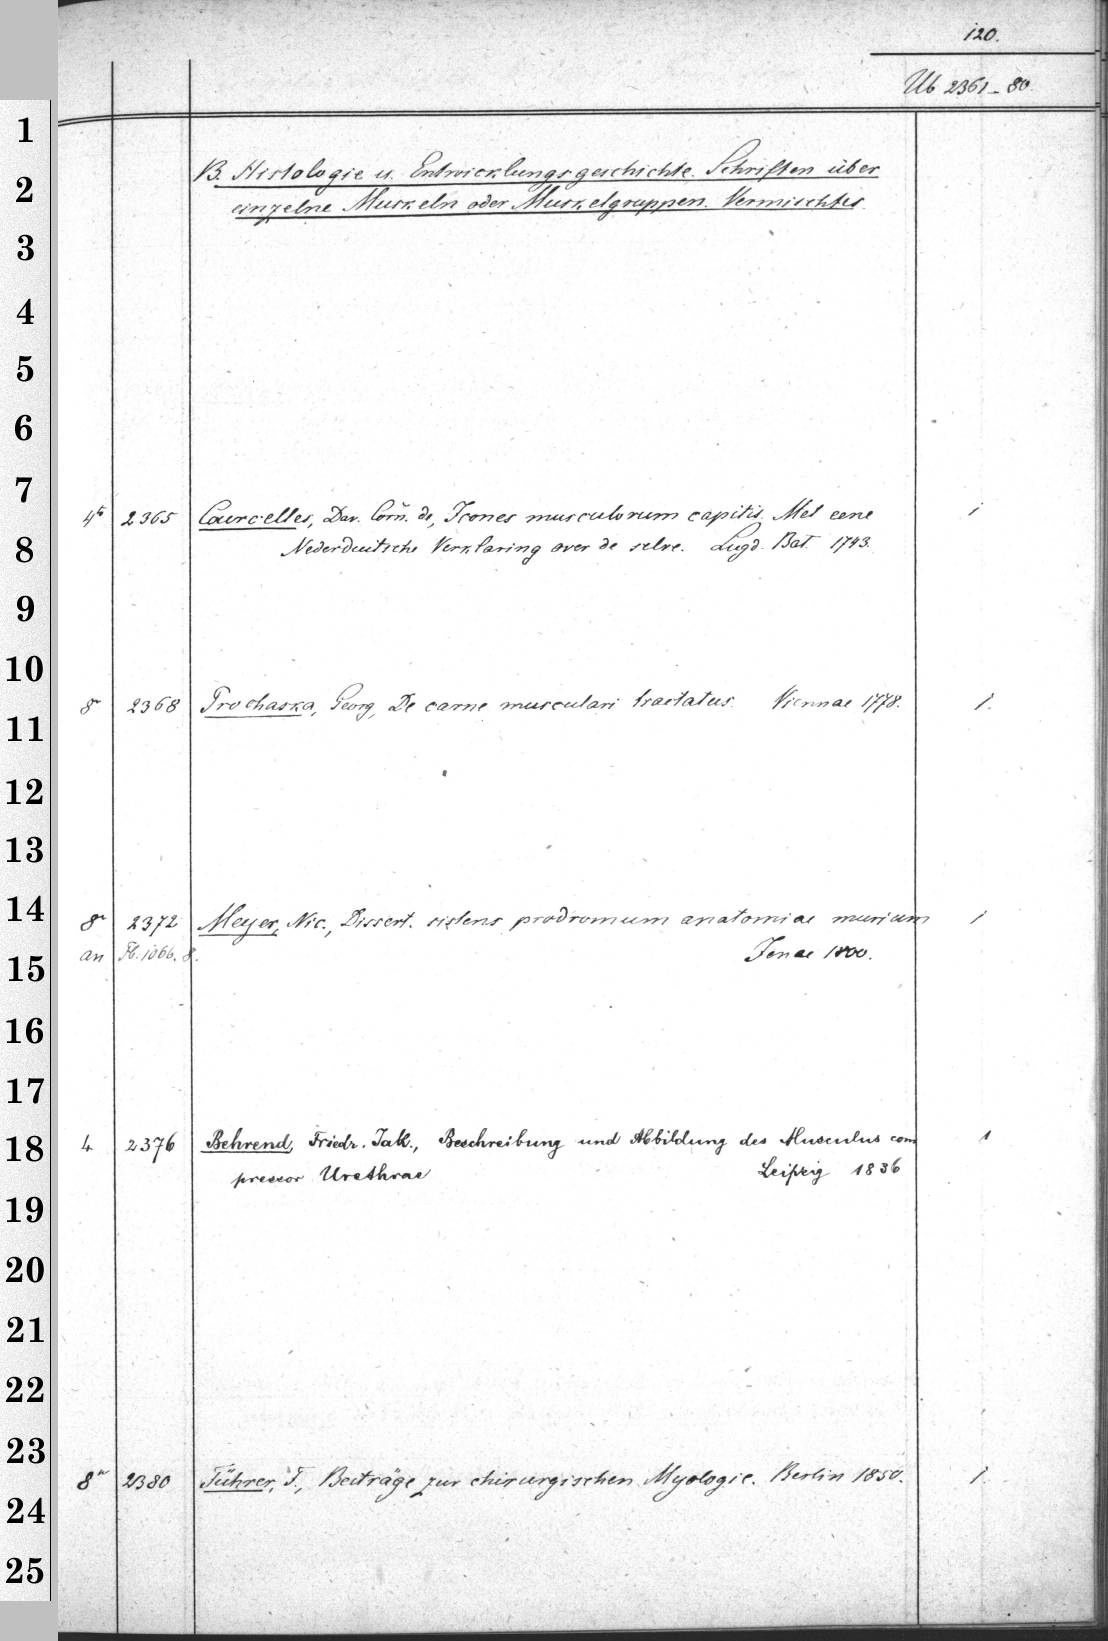 120.
Ub 2361-80.
1
B. Histologie u. Entwicklungsgeschichte. Schriften über
2
einzelne Muskeln oder Muskelgruppen. Vermischtes.
3
4
5
6
7
4to 2365 Courcelles, Dav. Corn. de, Icones musculorum capitis. Met eene 1
8
Nederduitsche Verklaring over de selve. Lugd. Bat. 1743.
9
10
8o 2368 Prochaska, Georg, De carne musculari tractatus. Viennae 1778. 1.
11
12
13
14
8o 2372 Meyer, Nic., Dissert. sistens prodromum anatomiae murium 1
an Fb. 1066. 8. Jenae 1800.
15
16
17
18
4 2376 Behrend, Friedr. Jak., Beschreibung und Abbildung des Musculus com 1
pressor Urethrae Leipzig 1836
19
20
21
22
23
8o 2380 Führer, F., Beiträge zur chirurgischen Myologie. Berlin 1850. 1.
24
25